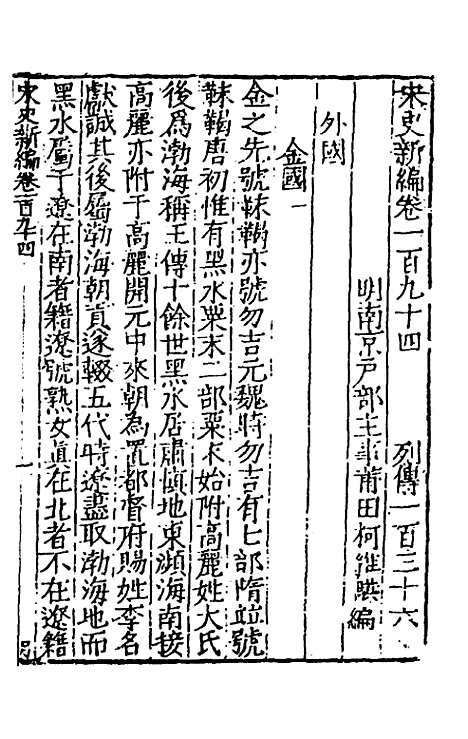 宋史新編卷一百九十四　列傳一百三十六
明南京戶部主事莆田柯維騏編
外國
金國一
金之先號靺鞨亦號勿吉元魏時勿吉有七部隋竝號
靺鞨唐初惟有黑水粟末二部粟末始附高麗姓大氏
後爲渤海稱王傳十餘世黑水居肅慎地東瀕海南接
高麗亦附于高麗開元中來朝為置都督府賜姓李名
獻誠其後屬渤海朝貢遂輟五代時遼盡取渤海地而
黑水屬于遼在南者籍遼號熟女眞在北者不在遼籍
宋史新編卷一百九十四
一